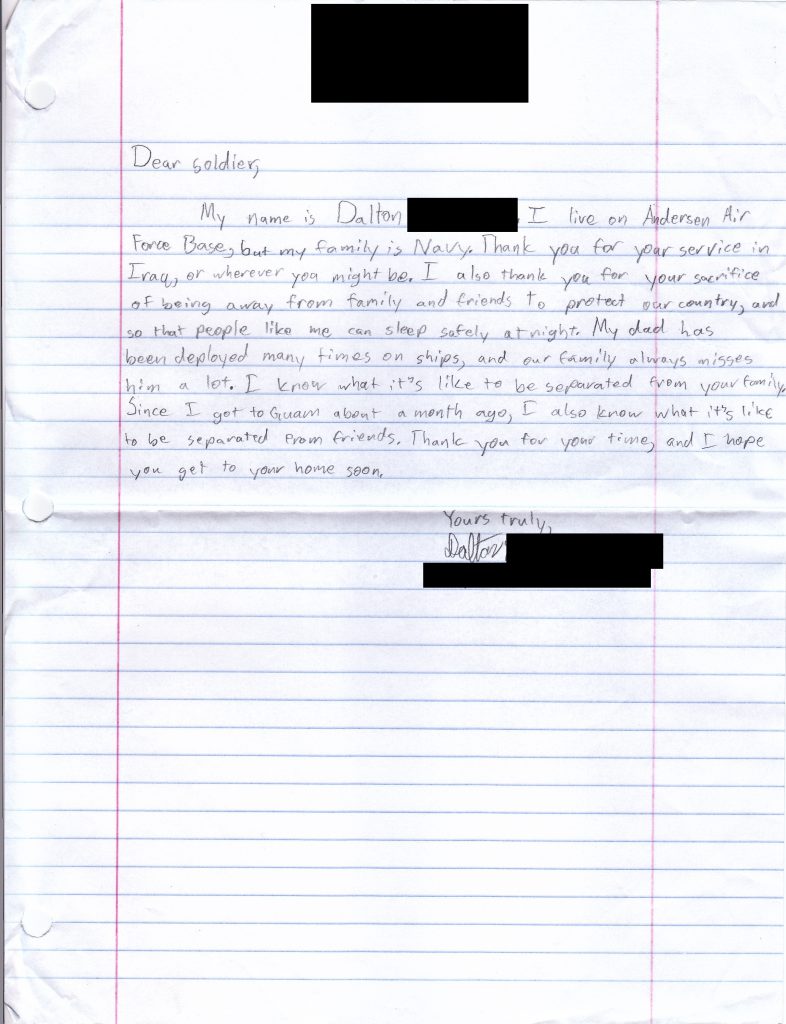 Dear soldier,
My name is Dalton . I live on Andersen Air
Force Base, but my family is Navy. Thank you for your service in
Iraq, or wherever you might be. I also thank you for your sacrifice
of being away from family and friends to protect our country, and
so that people like me can sleep safely at night. My dad has
been deployed many times on ships, and our family always misses
him a lot. I know what it's like to be separated from your family.
Since I got to Guam about a month ago, I also know what it's like
to be separated from friends. Thank you for your time, and I hope
you get to your home soon.
Yours truly,
Dalton